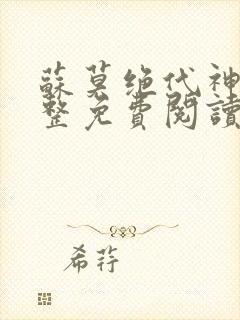 蘇莫绝代神
整免費閱讀
希荇